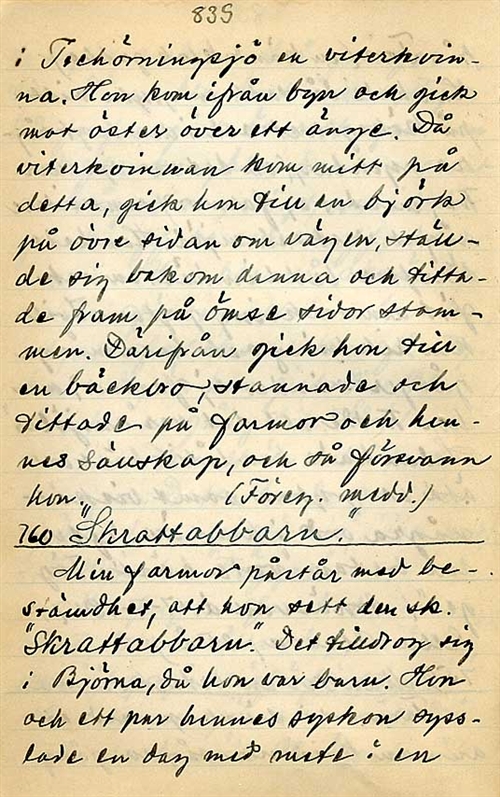 839
i Tschörningsjö en viterkvin-
na. Hon kom ifrån byn och gick
mot öster över ett änge. Då
viterkvinnan kom mitt på
detta, gick hon till en björk
på övre sidan om vägen, ställ-
de sig bakom denna och titta-
de fram på ömse sidor stam-
men. Därifrån gick hon till
en bäckbro, stannade och
tittade på farmor och hen-
nes sällskap, och så försvann
hon. (Föreg. medd.)
760 "Skrattabbarn."
Min farmor påstår med be-
stämdhet, att hon sett den sk.
"Skrattabbarn." Det tilldrog sig
i Björna, då hon var barn. Hon
och ett par hennes syskon syss-
lade en dag med mete i en